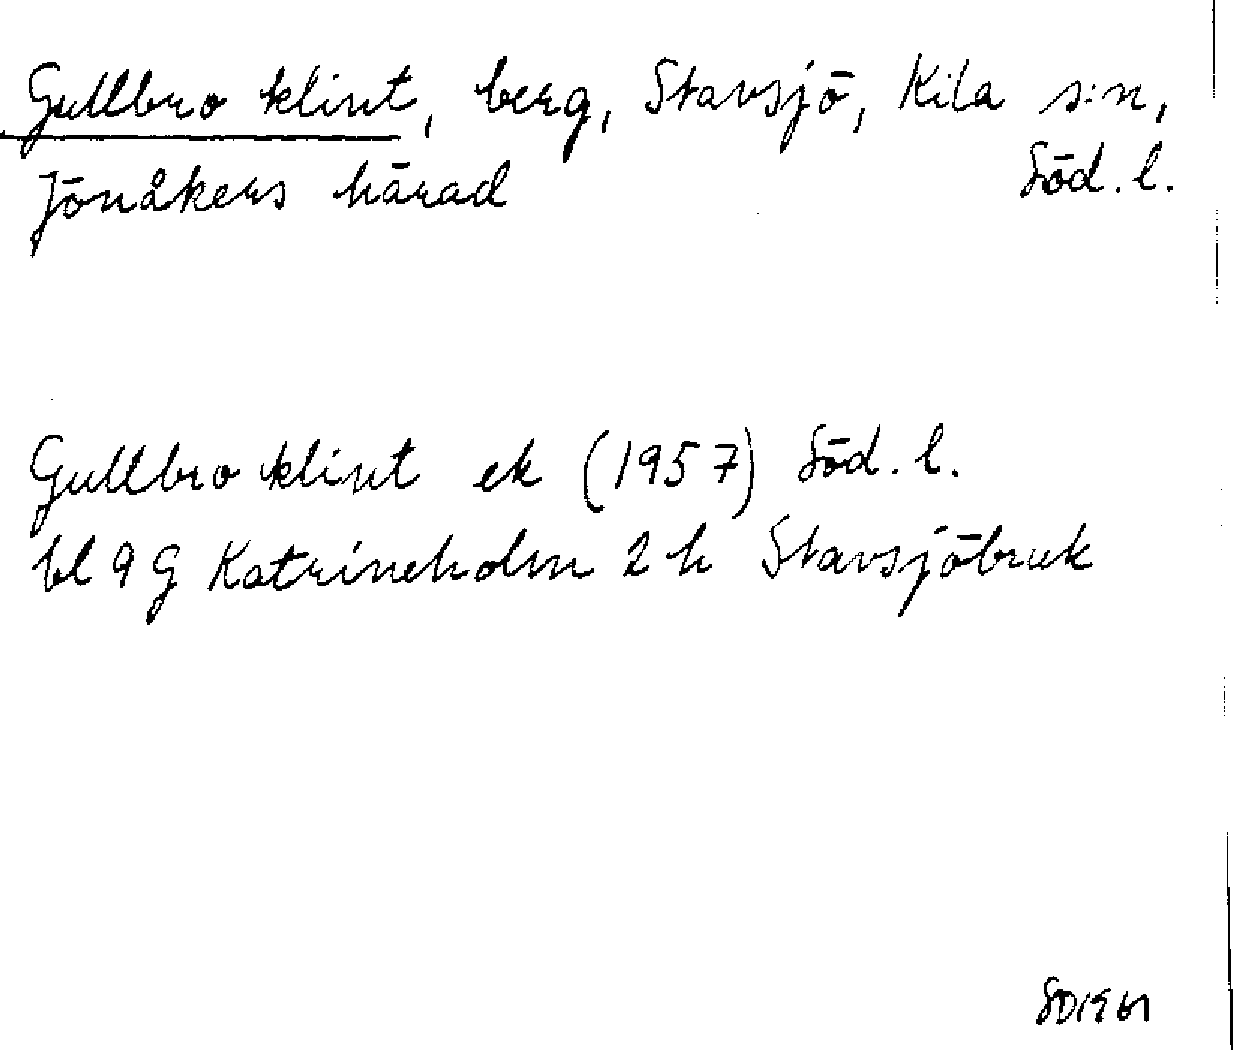 Gullbro klint, berg, Stavsjö, Kila s:n,
Jönåkers härad Söd. l.
Gullbro klint ek (1957) Söd. l.
bl 9 G Katrineholm 2 h Stavsjöbruk